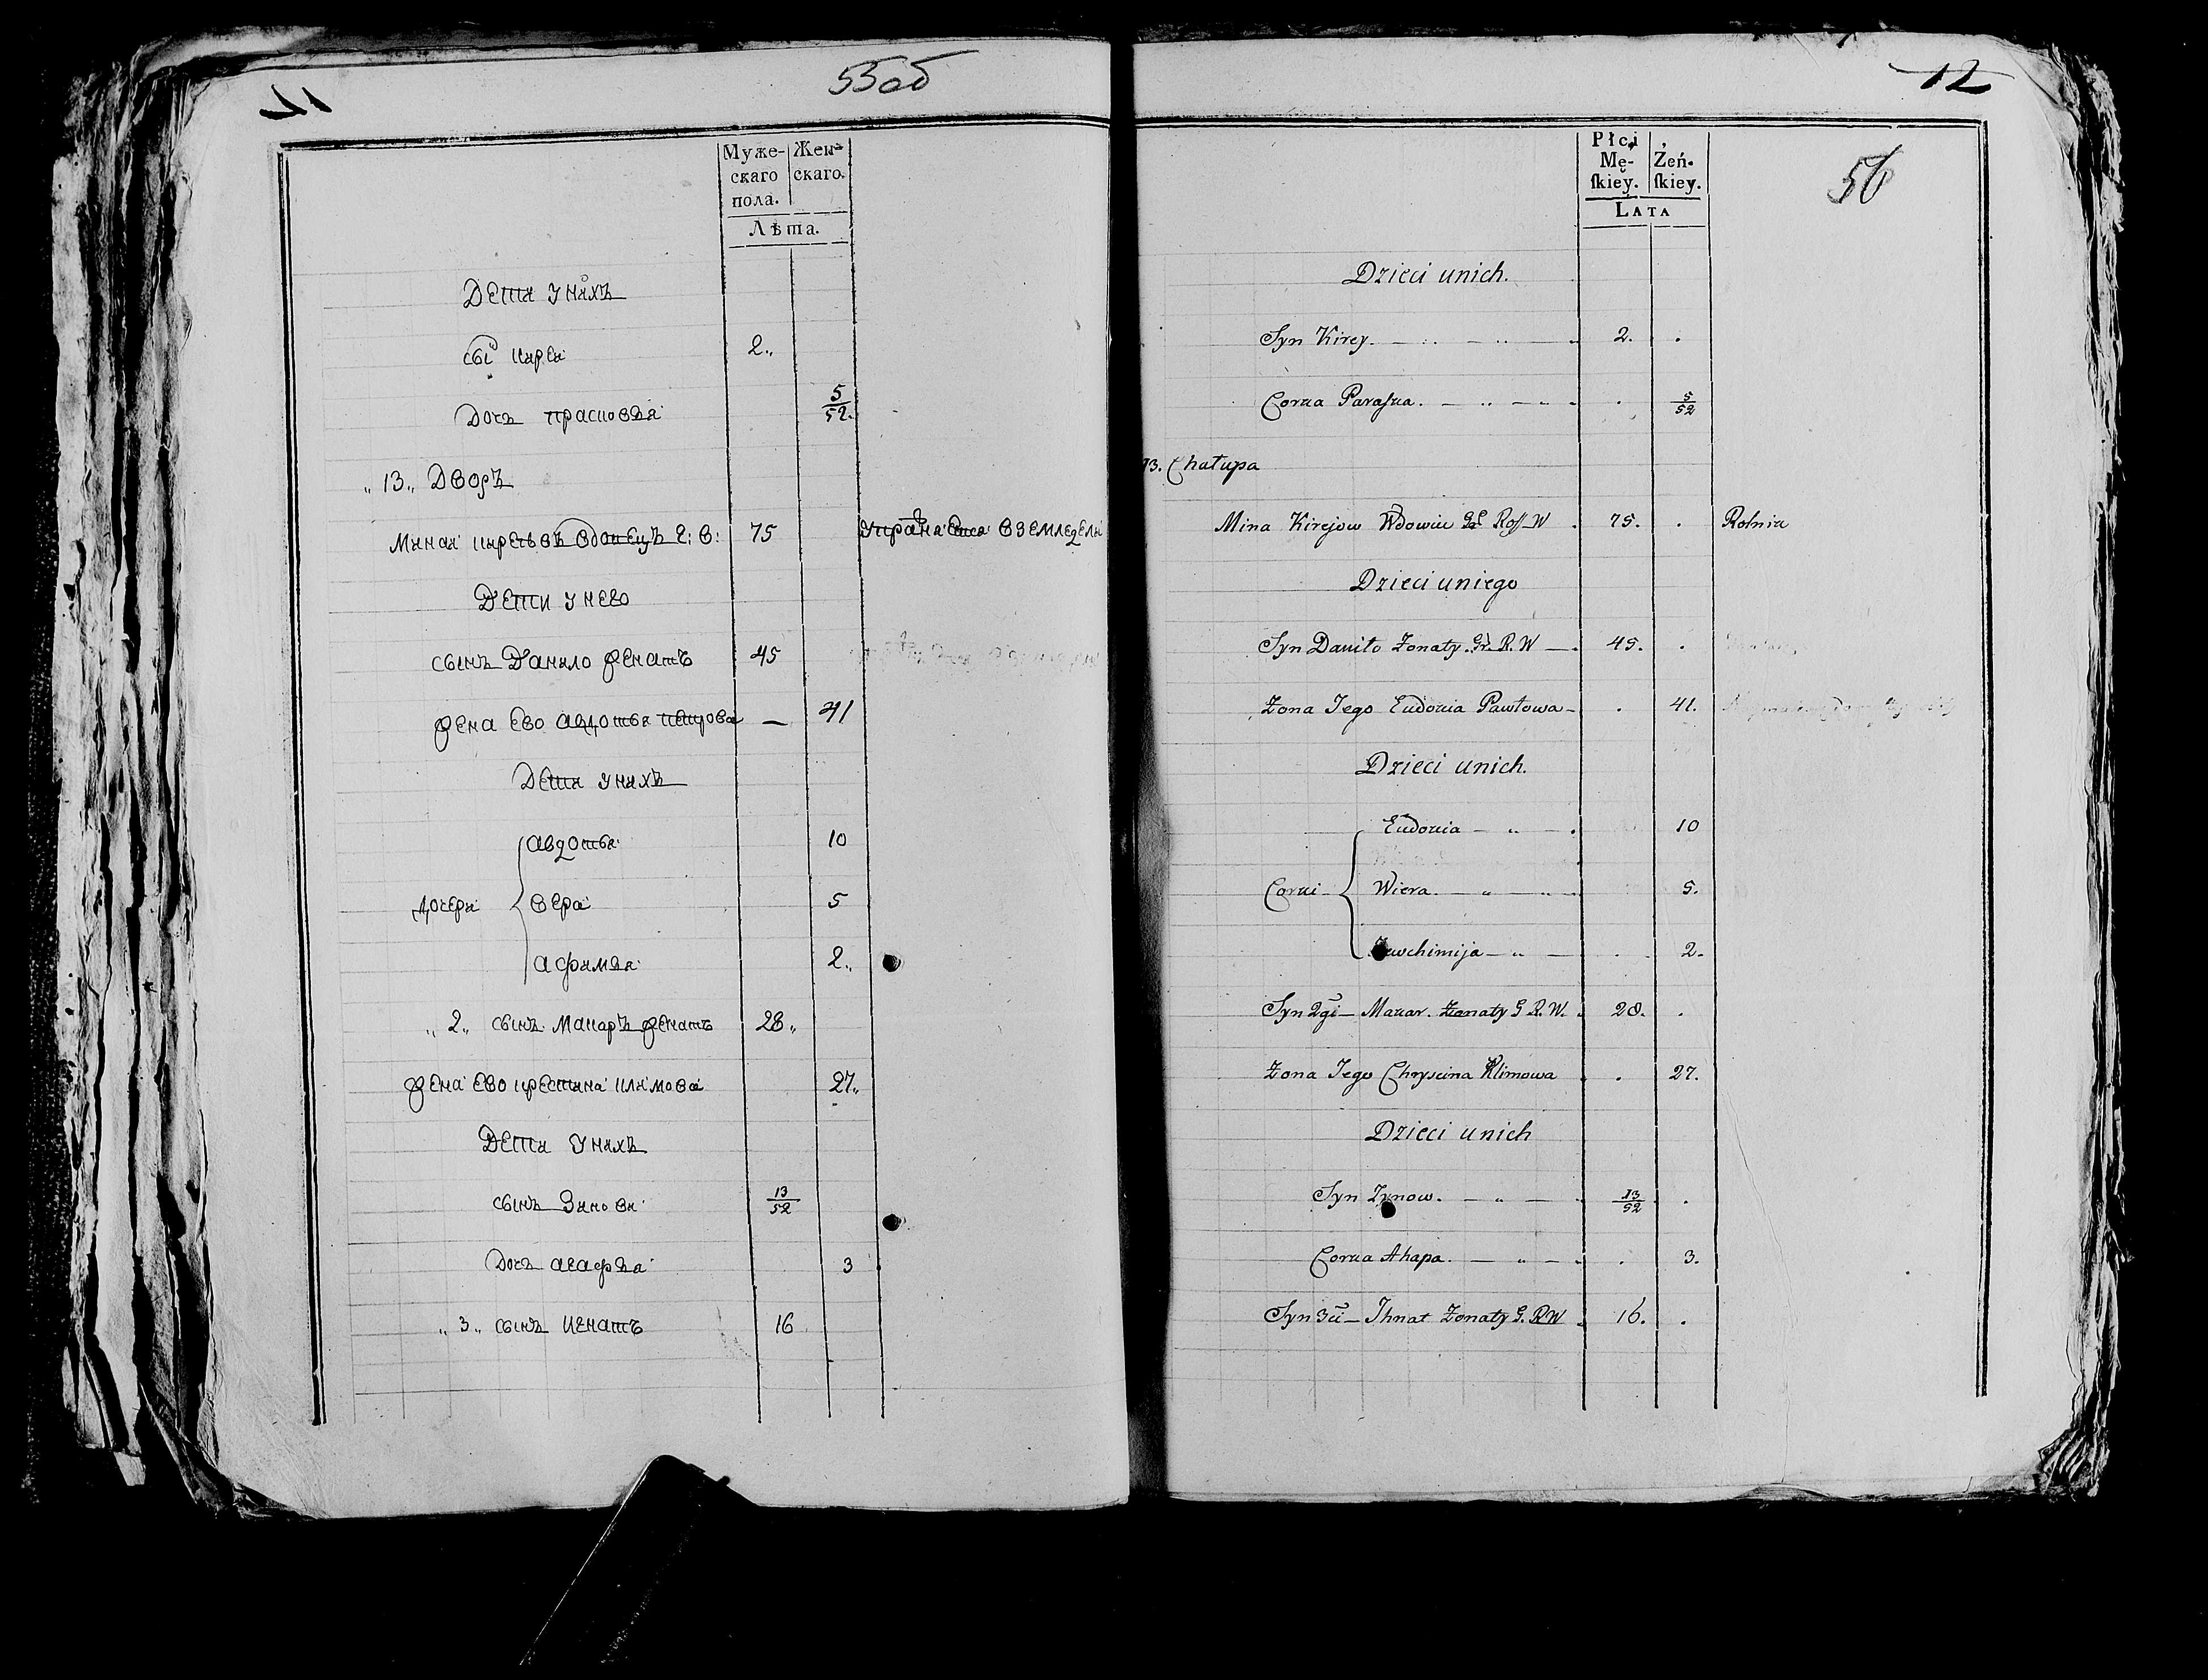 11
55об
Муже-
скаго
пола.
Жен-
скаго.
Лѣта.
Дети у нихъ
сы кирей 2
дочь прасковья 5/52
„13„ Дворъ
Минай киреивъ вдовецъ г: в: 75
Дети у нево
сынъ Данило женатъ 45
жена ево авдотья — 41
Дети у нихъ
дочери
авдотья 10
вера 5
афимья 2
„2„ сынъ Макаръ женатъ 28
жена ево крестина климова 27
Дети у нихъ
сынъ Зинове 13/52
дочь агафья 3
„3„ сынъ игнатъ 16
12
56
Płci
Mę-
ſkiey.
Żeń-
ſkiey.
LATA
Dzieci unich.
Syn Kirey. 2.
Corka Paraſka. 5/52
13. Chałupa
Mina Kirejow Wdowiec Roſſ W 75. Rolnik
Dzieci uniego
Syn Daniło Żonaty. Gr. R. W 45.
Żona Jego Eudokia Pawłowa 41.
Dzieci unich.
Corki
Eudokia 10
Wiera. 5.
2.
Syn 2gi Makar. Żonaty G R. W. 28.
Żona Jego Chryscina Klimowa 27.
Dzieci unich
Syn Zynow. 13/52
Corka Ahapa. 3.
Syn 3ci Ihnat Żonaty G. R W 16.